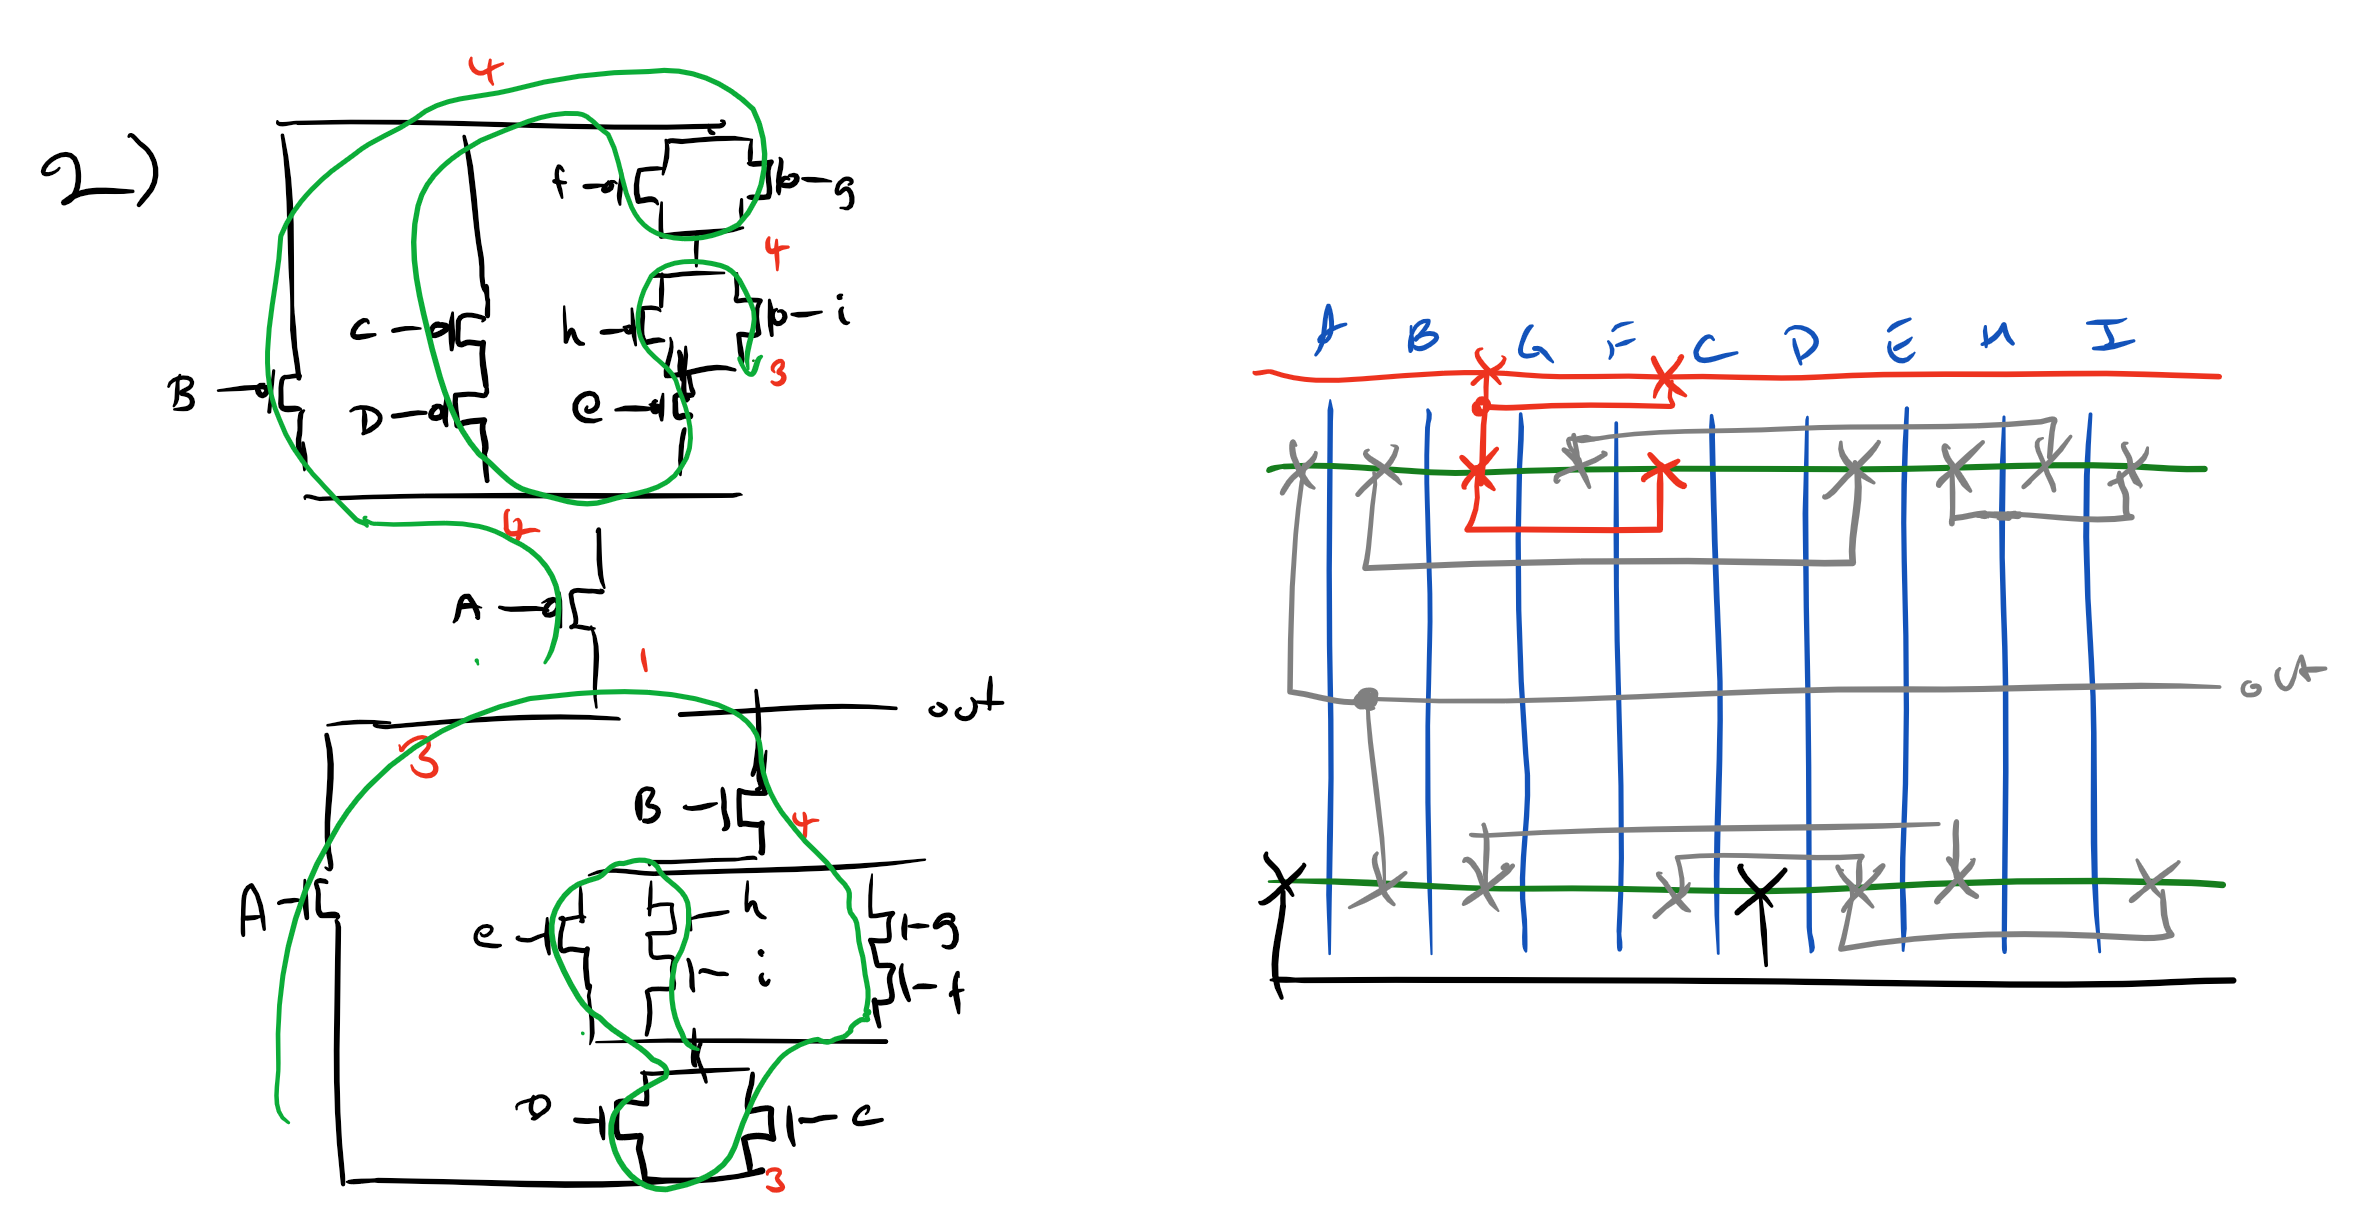 2)
4
f
g
4
C
h
i
3
B
D
e
4
A
1
out
3
B
4
A
e
h
g
i
f
D
c
3
A B G F C D E H I
out